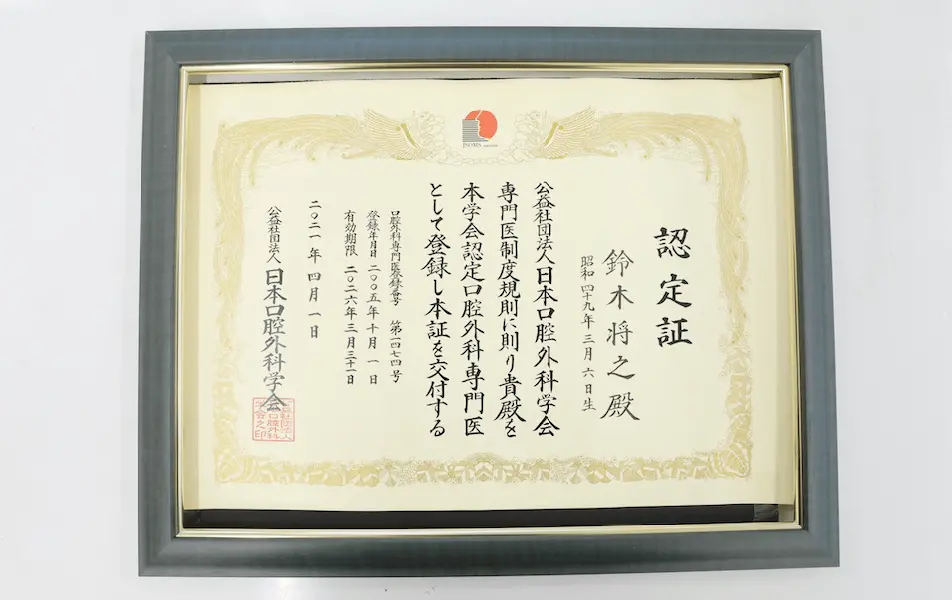 JSOMS
認定証
鈴木将之殿
昭和四十九年三月六日生
公益社団法人日本口腔外科学会
専門医制度規則に則り貴殿を
本学会認定口腔外科専門医
として登録し本証を交付する
口腔外科専門医登録番号 第一四七四号
登録年月日 二〇〇五年十月一日
有効期限 二〇二六年三月三十一日
二〇二一年四月一日
公益社団法人 日本口腔外科学会
公益社団法人
日本口腔外科
学会之印